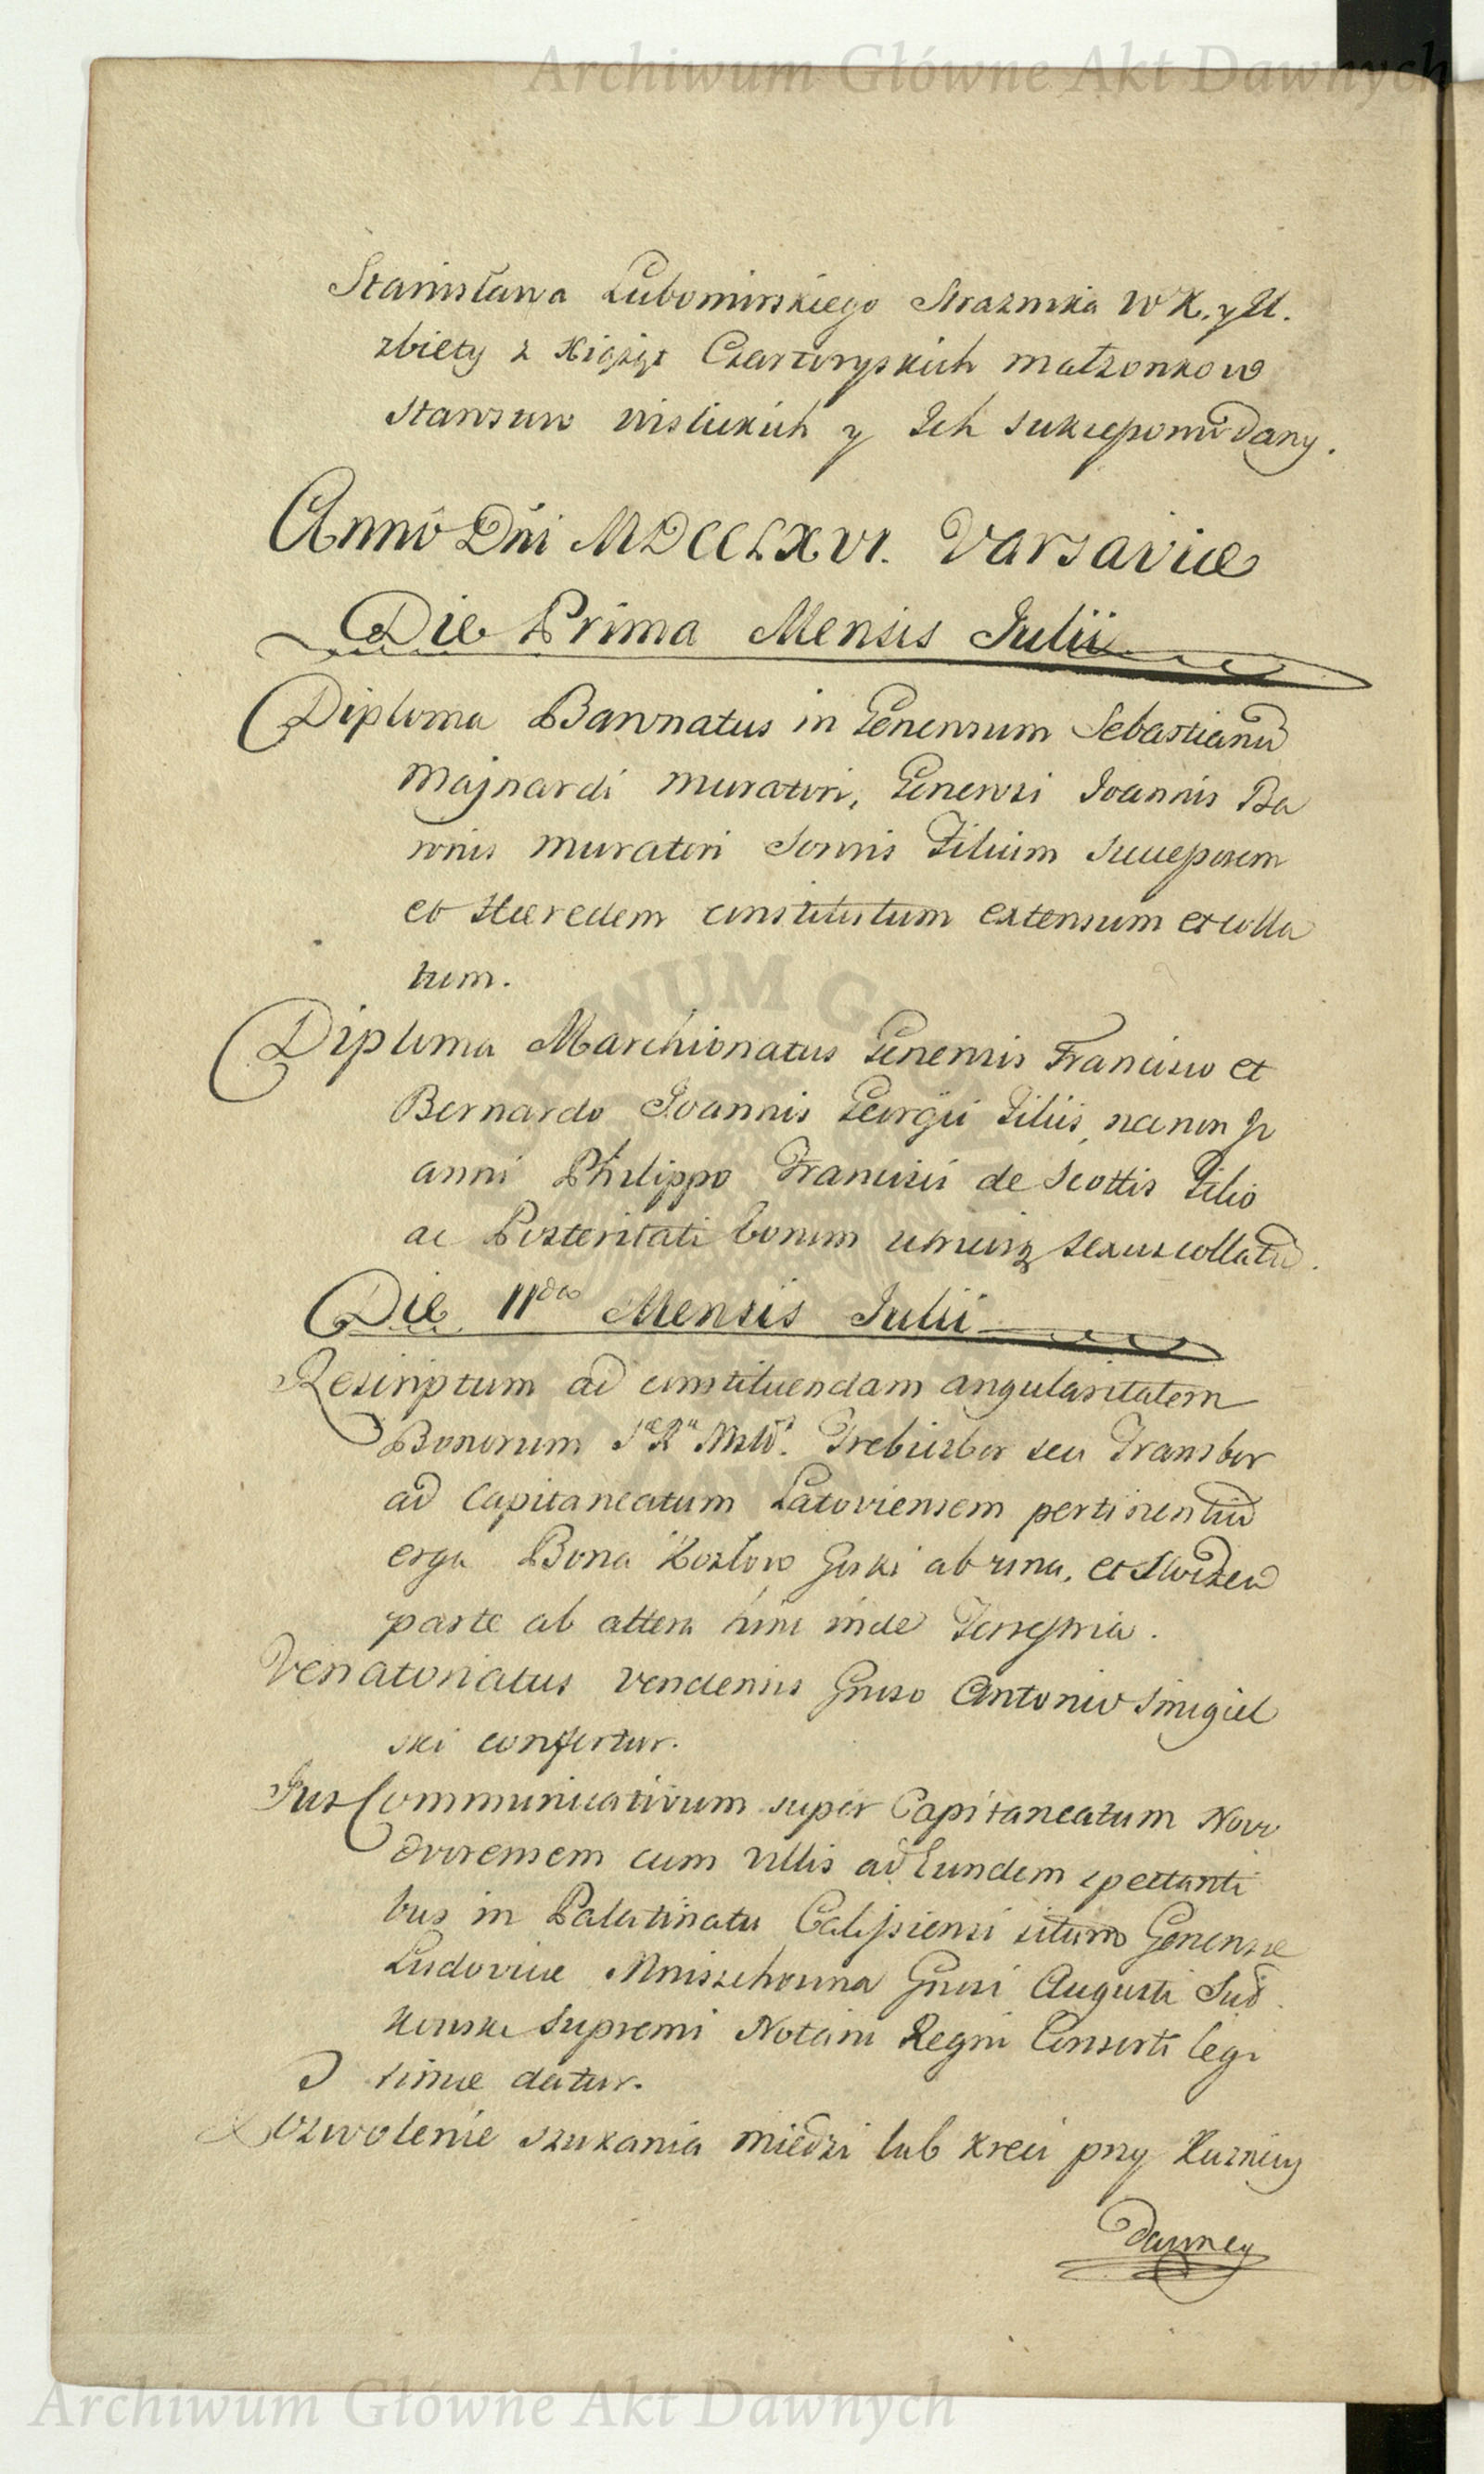 Archiwum Główne Akt Dawnych
Stanisława Lubomirskiego Straznika W K. y El.
zbiety z Xiążąt Czartoryskich małzonkow
Starostw wislickich y Ich sukcessorow dany.
Anno Dni MDCCLXVI. Varsaviæ
Die Prima Mensis Julii
Diploma Baronatus in Generosum Sebastianū
Majnardi Muratori, Generosi Joannis Ba
ronis Muratori Filium Successorem
et Hæredem constitutum extensum et colla
tum.
Diploma Marchionatus Generosis Francisco et
Bernardo Joannis Georgii Filiis, necnon Jo
anni Philippo Francisci de Scottis Filio
ac Posteritati eorum utriusq sexus collatū.
Die 11ma Mensis Julii
Rescriptum ad constituendam angularitatem
Bonorum Trebiesbor seu Transbor
ad Capitaneatum Latoviensem pertinentiū
erga Bona Kozłow ab una, et
parte ab altera hinc inde
Venatoriatus Vendensis Gnroso Antonio Smigiel
ski confertur.
Jus Communicativum super Capitaneatum Novo
dvorensem cum villis ad Eundem spectanti
bus in Palatinatu Calissiensi situm Generosæ
Ludovicæ Mniszchowna Gnrosi Augusti
Supremi Notarii Regni Consorti legi
timæ datur.
Pozwolenie szukania miedzi lub kreci przy Kuznicy
dawney
Archiwum Główne Akt Dawnych